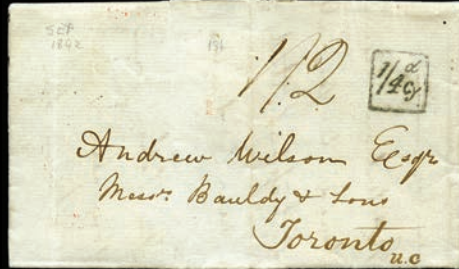 1842
1/2
1/4d Cy
Andrew Wilson Esqr
Messrs Bauldy & Sons
Toronto
U.C